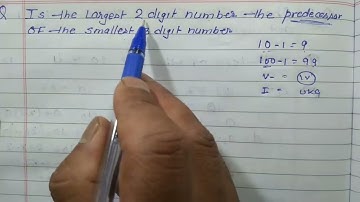 Q Is the largest 2 digit number the predecessor
OF the smallest 3 digit number
10-1=9
100-1=99
V-
I =